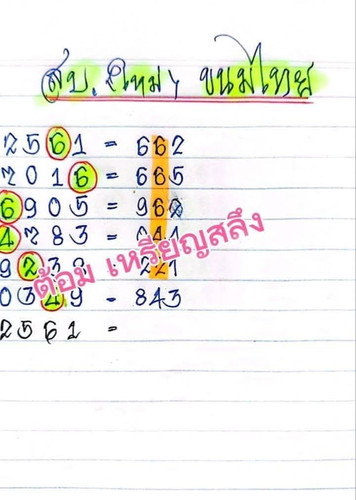 สบ. ใหม่ๆ ขนมไทย
2561 = 662
7016 = 665
6905 = 96
4783 = 641
923 : 221
0349 - 843
2561 =
ต้อม เหรียญสลึง